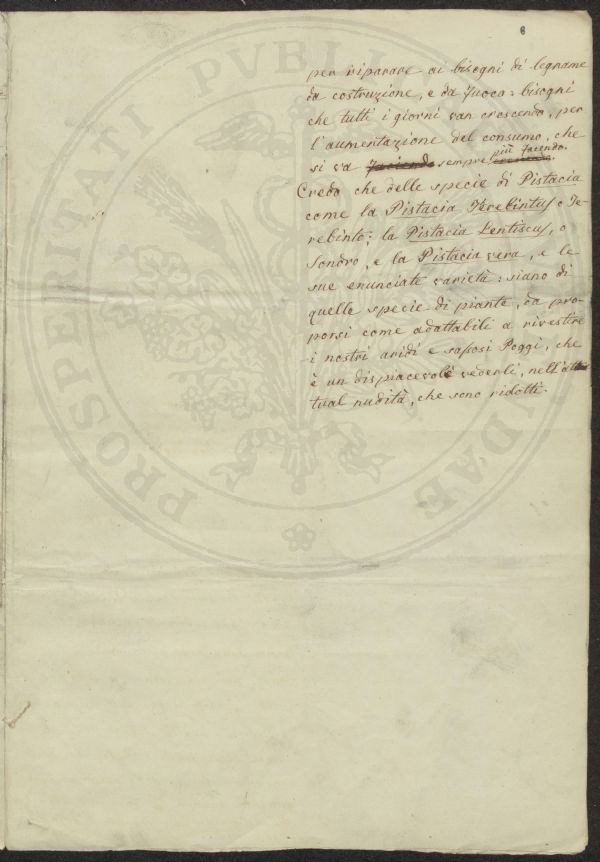 6
per riparare ai bisogni di legname
da costruzione, e da fuoco: bisogni
che tutti i giorni van crescendo, per
l'aumentazione del consumo, che
si va facendo sempre più facendo.
Credo che delle specie di Pistacia
come la Pistacia Terebintus o Te-
rebinto; la Pistacia Lentiscus, o
Sondro, e la Pistacia vera, e le
sue enunciate varietà: siano di
quelle specie di piante, da pro-
porsi come adattabili a rivestire
i nostri aridi e sassosi Poggi, che
è un dispiacevole vederli, nell'at-
tual nudità, che sono ridotti.
PROSPERITATI PVBLICAE